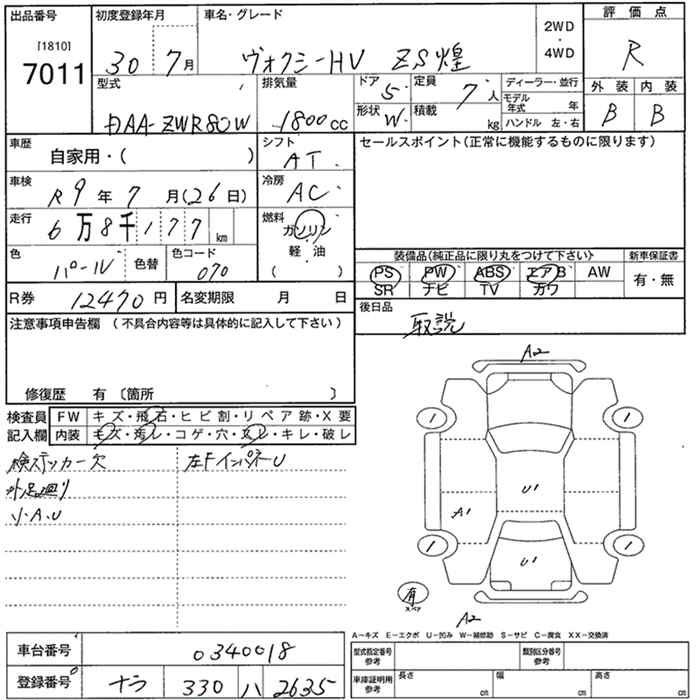 出品番号 初度登録年月 車名・グレード 2WD・4WD 評価点
[1810]
7011 30 7月 ヴォクシーHV ZS煌 R
型式 排気量 ドア 5 定員 7人 ディーラー・並行 外装 内装
DAA-ZWR80W 1800cc 形状 W 積載 kg モデル年式 年 B B
ハンドル 左・右
車歴 自家用・( ) シフト AT セールスポイント(正常に機能するものに限ります)
車検 R9年7月(26日) 冷房 AC
走行 6万8千177km 燃料 ガソリン
軽・油
( )
色 パール 色替 色コード 070
装備品(純正品に限り丸をつけて下さい) 新車保証書
PS PW ABS エアB AW 有・無
SR ナビ TV カワ
R券 12470円 名変期限 月 日 後日品
取説
注意事項申告欄(不具合内容等は具体的に記入して下さい)
修復歴 有 〔箇所 〕
検査員 FW キズ・飛石・ヒビ割・リペア跡・X要
記入欄 内装 キズ・汚レ・コゲ・穴・スレ・キレ・破レ
検ステッカー欠 左FインパネU
外足廻り
リ・A・U
A2
1 1
U1
A1
1 1
U1
有
スペア
A2
A-キズ E-エクボ U-凹み W-補修跡 S-サビ C-腐食 XX-交換済
車台番号 0340018 型式指定番号 参考 類別区分番号 参考
登録番号 ナラ 330 ハ 2635 車庫証明用 参考 長さ cm 幅 cm 高さ cm